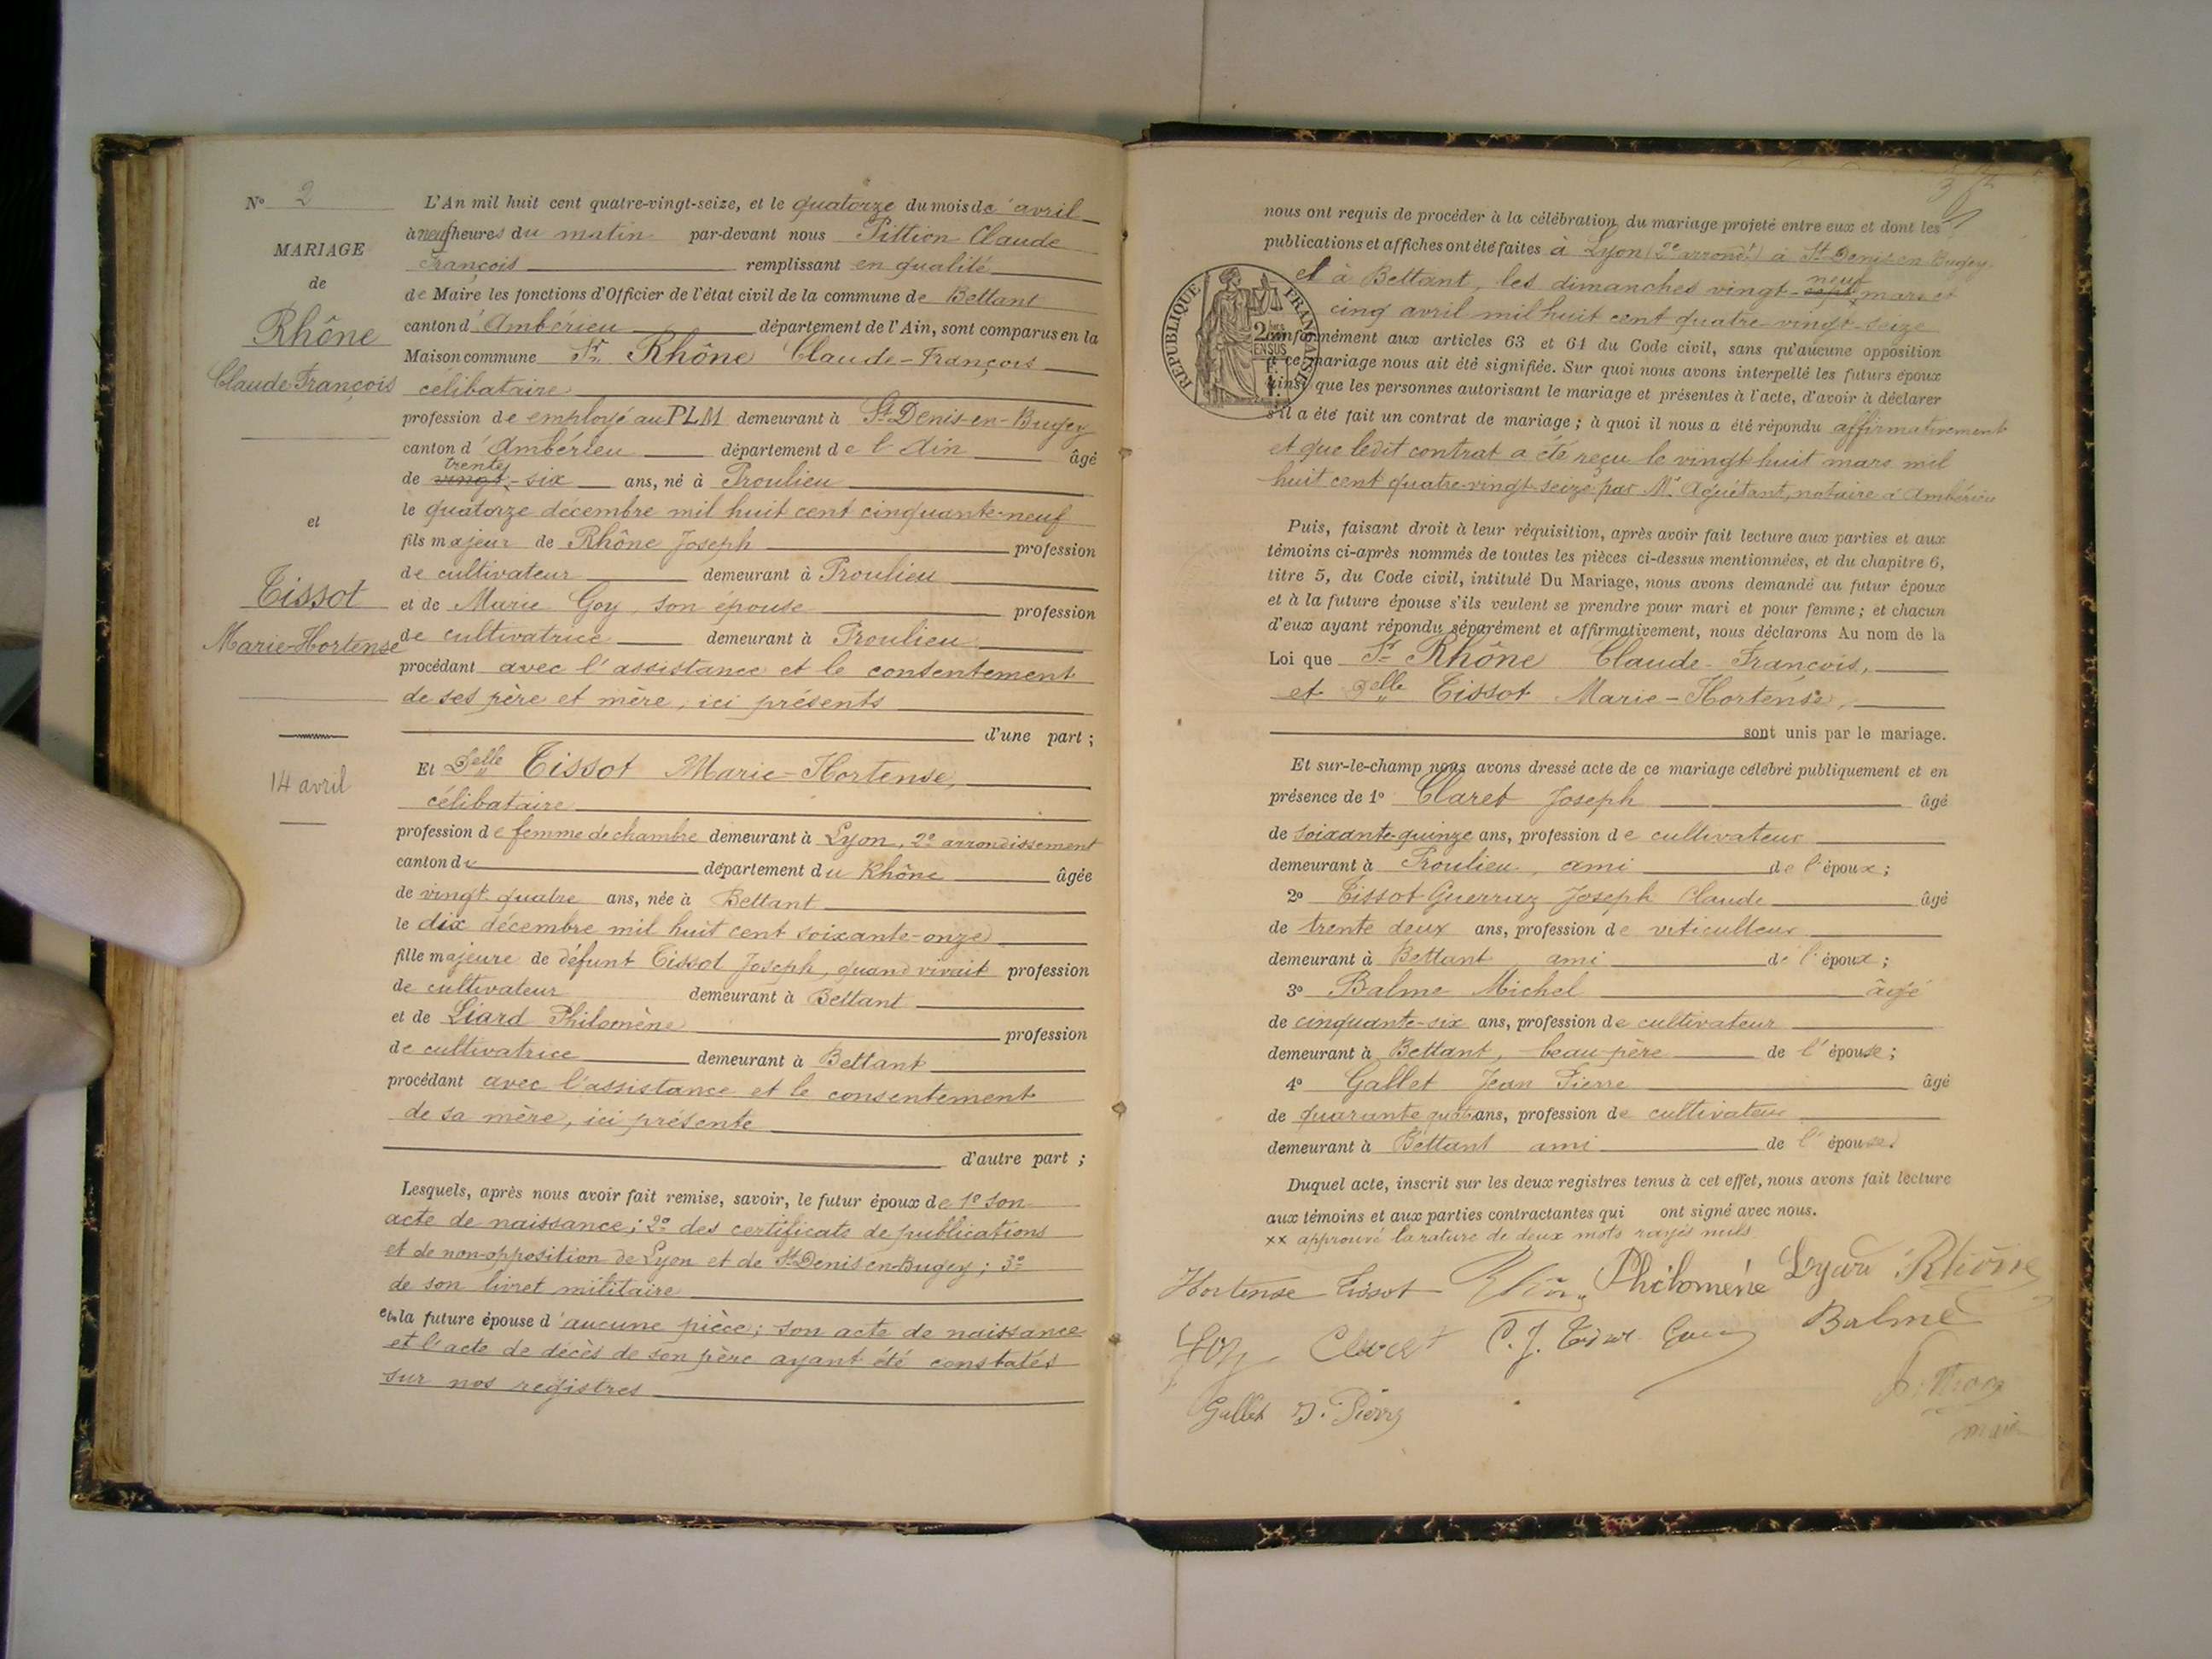 N° 2
MARIAGE
de
Rhône
Claude François
et
Tissot
Marie-Hortense
14 avril
L'An mil huit cent quatre-vingt-seize, et le quatorze du mois de avril
à neuf heures du matin par-devant nous Pittion Claude
François remplissant en qualité
de Maire les fonctions d'Officier de l'état civil de la commune de Bettant
canton d'Ambérieu département de l'Ain, sont comparus en la
Maison commune Sr Rhône Claude-François
célibataire
profession de employé au PLM demeurant à St-Denis-en-Bugey
canton d'Ambérieu département de l'Ain âgé
trente
de vingt-six ans, né à Proulieu
le quatorze décembre mil huit cent cinquante-neuf
fils majeur de Rhône Joseph profession
de cultivateur demeurant à Proulieu
et de Marie Goy, son épouse profession
de cultivatrice demeurant à Proulieu
procédant avec l'assistance et le consentement
de ses père et mère, ici présents
d'une part ;
Et Delle Tissot Marie-Hortense,
célibataire
profession de femme de chambre demeurant à Lyon, 2e arrondissement
canton du département du Rhône âgée
de vingt-quatre ans, née à Bettant
le dix décembre mil huit cent soixante-onze
fille majeure de défunt Tissot Joseph, quand vivait profession
de cultivateur demeurant à Bettant
et de Liard Philomène profession
de cultivatrice demeurant à Bettant
procédant avec l'assistance et le consentement
de sa mère, ici présente
d'autre part ;
Lesquels, après nous avoir fait remise, savoir, le futur époux de 1° son
acte de naissance ; 2° des certificats de publications
et de non-opposition de Lyon et de St-Denis en-Bugey ; 3°
de son livret militaire
et la future épouse d'aucune pièce ; son acte de naissance
et l'acte de décès de son père ayant été constatés
sur nos registres
nous ont requis de procéder à la célébration du mariage projeté entre eux et dont les
publications et affiches ont été faites à Lyon (2e arrondt) à St-Denis en Bugey
neuf
et à Bettant, les dimanches vingt-sept mars et
cinq avril mil huit cent quatre-vingt-seize
conformément aux articles 63 et 64 du Code civil, sans qu'aucune opposition
à ce mariage nous ait été signifiée. Sur quoi nous avons interpellé les futurs époux
ainsi que les personnes autorisant le mariage et présentes à l'acte, d'avoir à déclarer
s'il a été fait un contrat de mariage ; à quoi il nous a été répondu affirmativement
et que ledit contrat a été reçu le vingt huit mars mil
huit cent quatre-vingt-seize par Me Aguétant, notaire à Ambérieu
REPUBLIQUE FRANÇAISE
Puis, faisant droit à leur réquisition, après avoir fait lecture aux parties et aux
témoins ci-après nommés de toutes les pièces ci-dessus mentionnées, et du chapitre 6,
titre 5, du Code civil, intitulé Du Mariage, nous avons demandé au futur époux
et à la future épouse s'ils veulent se prendre pour mari et pour femme ; et chacun
d'eux ayant répondu séparément et affirmativement, nous déclarons Au nom de la
Loi que Sr Rhône Claude-François,
et Delle Tissot Marie-Hortense,
sont unis par le mariage.
Et sur-le-champ nous avons dressé acte de ce mariage célébré publiquement et en
présence de 1° Claret Joseph âgé
de soixante-quinze ans, profession de cultivateur
demeurant à Proulieu, ami de l'époux ;
2° Tissot-Guerraz Joseph Claude âgé
de trente deux ans, profession de viticulteur
demeurant à Bettant, ami de l'époux ;
3° Balme Michel âgé
de cinquante-six ans, profession de cultivateur
demeurant à Bettant, beau-père de l'épouse ;
4° Gallet Jean Pierre âgé
de quarante quatre ans, profession de cultivateur
demeurant à Bettant ami de l'épouse.
Duquel acte, inscrit sur les deux registres tenus à cet effet, nous avons fait lecture
aux témoins et aux parties contractantes qui ont signé avec nous.
×× approuvé la rature de deux mots rayés nuls
Hortense Tissot Philomène Rhône
Goy Claret C. J. Balme
Gallet J. Pierre
maire